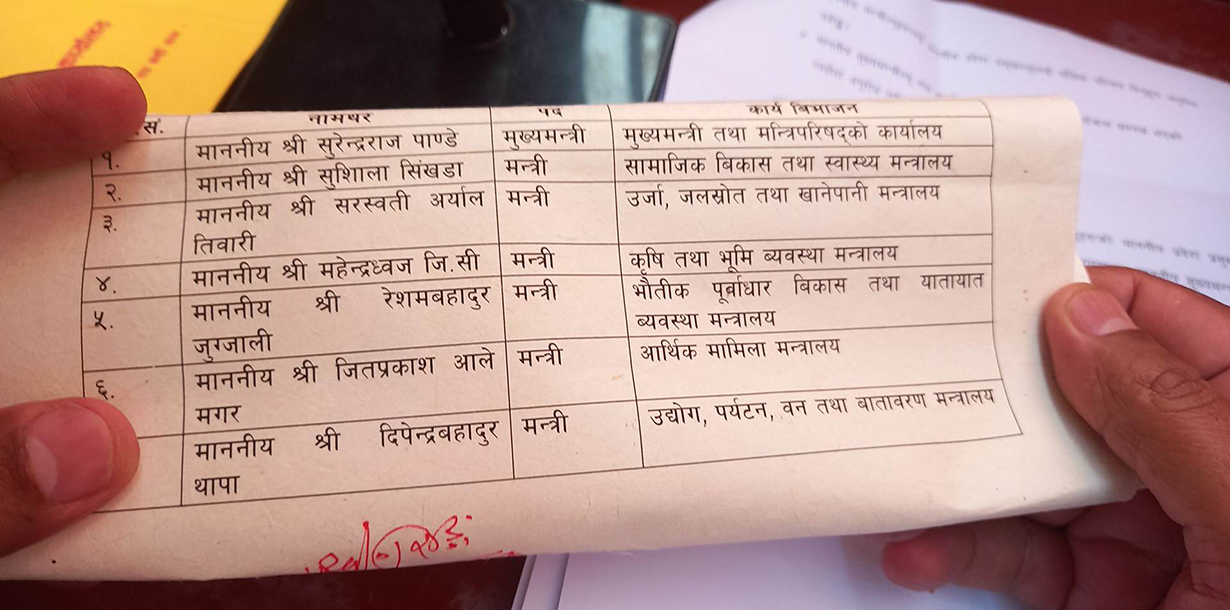 .सं. नामथर पद कार्य बिभाजन
१. माननीय श्री सुरेन्द्रराज पाण्डे मुख्यमन्त्री मुख्यमन्त्री तथा मन्त्रिपरिषद्को कार्यालय
२. माननीय श्री सुशिला सिंखडा मन्त्री सामाजिक बिकास तथा स्वास्थ्य मन्त्रालय
३. माननीय श्री सरस्वती अर्याल मन्त्री उर्जा, जलस्रोत तथा खानेपानी मन्त्रालय
तिवारी
४. माननीय श्री महेन्द्रध्वज जि.सी मन्त्री कृषि तथा भूमि ब्यवस्था मन्त्रालय
५. माननीय श्री रेशमबहादुर मन्त्री भौतीक पूर्वाधार बिकास तथा यातायात
जुग्जाली ब्यवस्था मन्त्रालय
६. माननीय श्री जितप्रकाश आले मन्त्री आर्थिक मामिला मन्त्रालय
मगर
माननीय श्री दिपेन्द्रबहादुर मन्त्री उद्योग, पर्यटन, वन तथा बातावरण मन्त्रालय
थापा